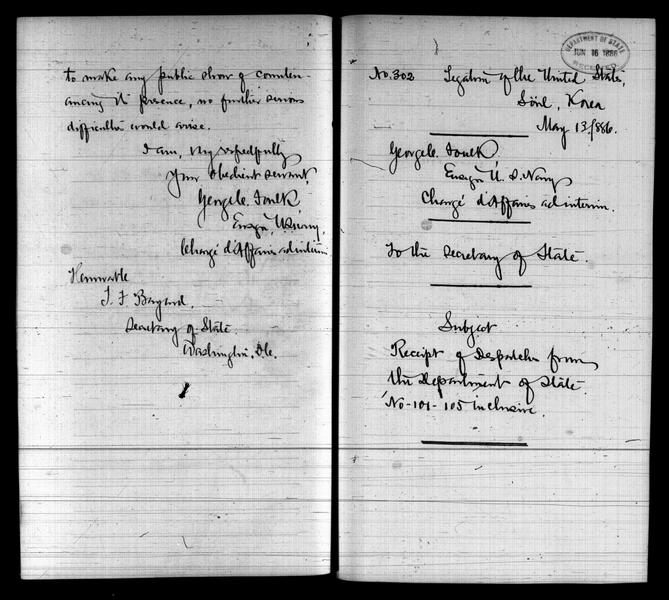 to make any public show of counten-
ancing its presence, no further serious
difficulties would arise.
I am, very respectfully
Your obedient servant,
George C. Foulk
Ensign, U.S. Navy,
Chargé d'Affaires ad interim
Honorable
T. F. Bayard,
Secretary of State
Washington, D.C.
DEPARTMENT OF STATE
JUN 16 1886
RECEIVED
No. 302 Legation of the United States,
Söul, Korea
May 13, 1886.
George C. Foulk
Ensign U. S. Navy
Chargé d'Affaires ad interim.
To the Secretary of State.
Subject
Receipt of Despatches from
the Department of State
No-101-105 inclusive.